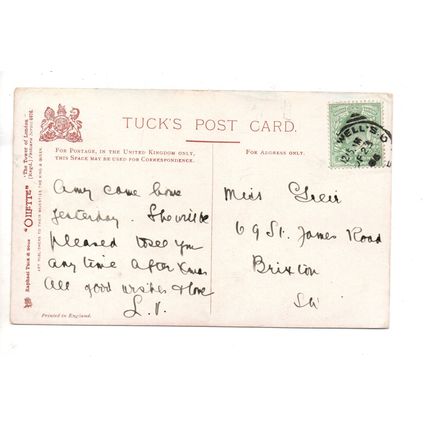 TUCK'S POST CARD.
FOR POSTAGE, IN THE UNITED KINGDOM ONLY,
THIS SPACE MAY BE USED FOR CORRESPONDENCE.
FOR ADDRESS ONLY.
Raphael Tuck & Sons "OILETTE" The Tower of London
ART PUBLISHERS TO THEIR MAJESTIES THE KING & QUEEN.
Amy came home
yesterday. She will be
pleased to see you
any time after Xmas
All good wishes & love
L.V.
Printed in England.
WELL'S
Miss
69 St. James Road
Brixton